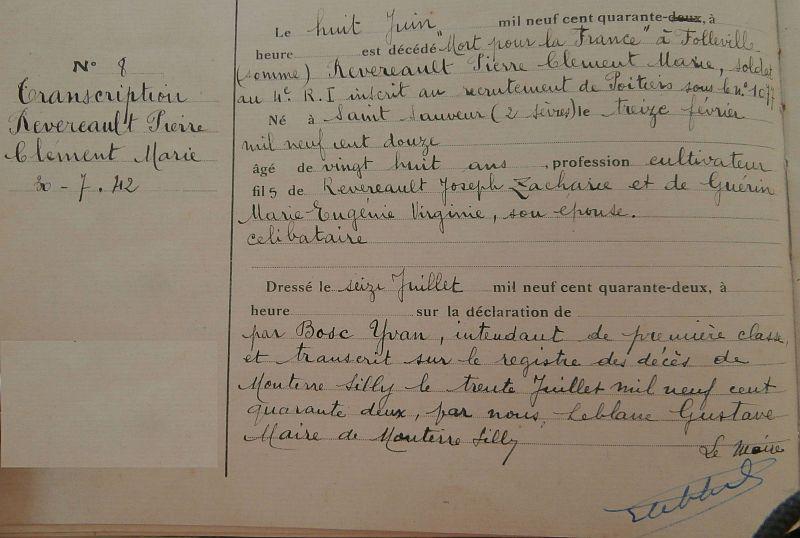 N° 8
Transcription
Revereault Pierre
Clément Marie
30-7.42
Le huit Juin mil neuf cent quarante-deux, à
heure est décédé "Mort pour la France" à Folleville
(somme) Revereault Pierre Clément Marie, soldat
au 4e. R.I inscrit au recrutement de Poitiers sous le n° 1077
Né à Saint Sauveur (2 sèvres) le treize février
mil neuf cent douze
âgé de vingt huit ans, profession cultivateur
fils de Revereault Joseph Zacharie et de Guérin
Marie Eugénie Virginie, son épouse.
celibataire
Dressé le seize Juillet mil neuf cent quarante-deux, à
heure sur la déclaration de
par Bosc Yvan, intendant de première classe,
et transcrit sur le registre des décès de
Mouterre Silly le trente Juillet mil neuf cent
quarante deux, par nous, Leblanc Gustave
Maire de Mouterre Silly
Le Maire